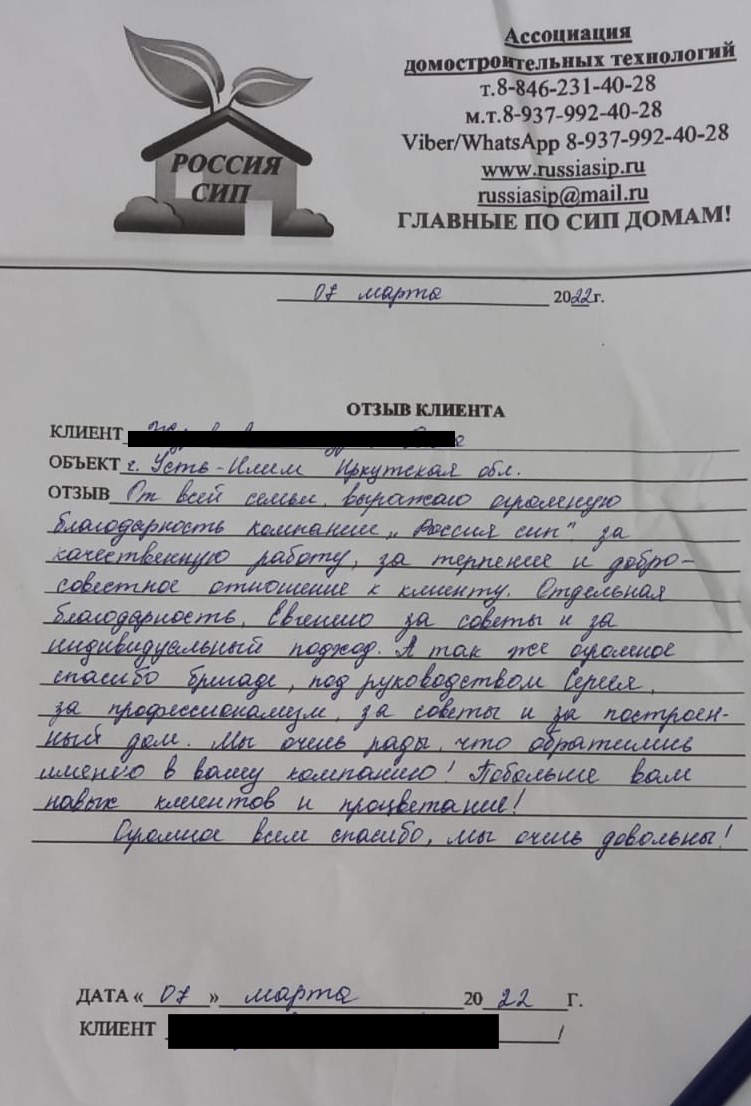 Ассоциация
домостроительных технологий
т.8-846-231-40-28
м.т.8-937-992-40-28
Viber/WhatsApp 8-937-992-40-28
www.russiasip.ru
russiasip@mail.ru
ГЛАВНЫЕ ПО СИП ДОМАМ!
РОССИЯ
СИП
07 марта 2022г.
ОТЗЫВ КЛИЕНТА
КЛИЕНТ
ОБЪЕКТ г. Усть-Илим Иркутская обл.
ОТЗЫВ От всей семьи, выражаю огромную
благодарность компании „Россия сип" за
качественную работу, за терпение и добро-
совестное отношение к клиенту. Отдельная
благодарность, Евгению за советы и за
индивидуальный подход. А так же огромное
спасибо бригаде, под руководством Сергея,
за профессионализм, за советы и за построен-
ный дом. Мы очень рады, что обратились
именно в вашу компанию! Побольше вам
новых клиентов и процветание!
Огромное всем спасибо, мы очень довольны!
ДАТА « 07 » марта 20 22 Г.
КЛИЕНТ /